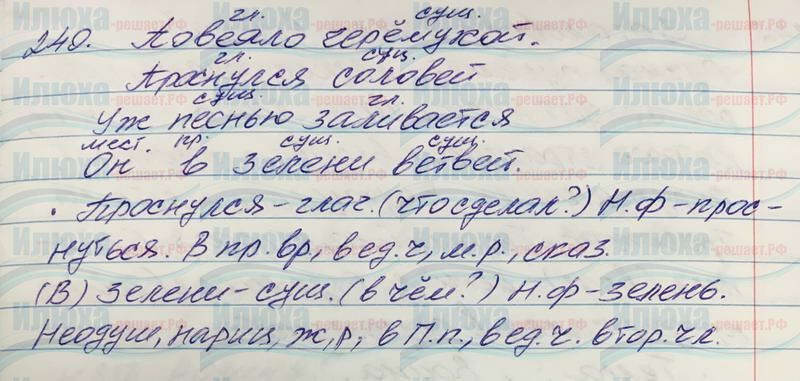 гл. сущ.
240. Повеяло черёмухой.
гл. сущ.
Проснулся соловей
сущ. гл.
Уж песнью заливается
мест. пр. сущ. сущ.
Он в зелени ветвей.
Проснулся - глаг. (что сделал?) Н.ф - прос-
нуться. В пр. вр, в ед.ч, м.р., сказ.
(В) зелени - сущ. (в чём?) Н.ф - зелень.
Неодуш, нариц, ж.р, в П.п., в ед.ч. втор.чл.